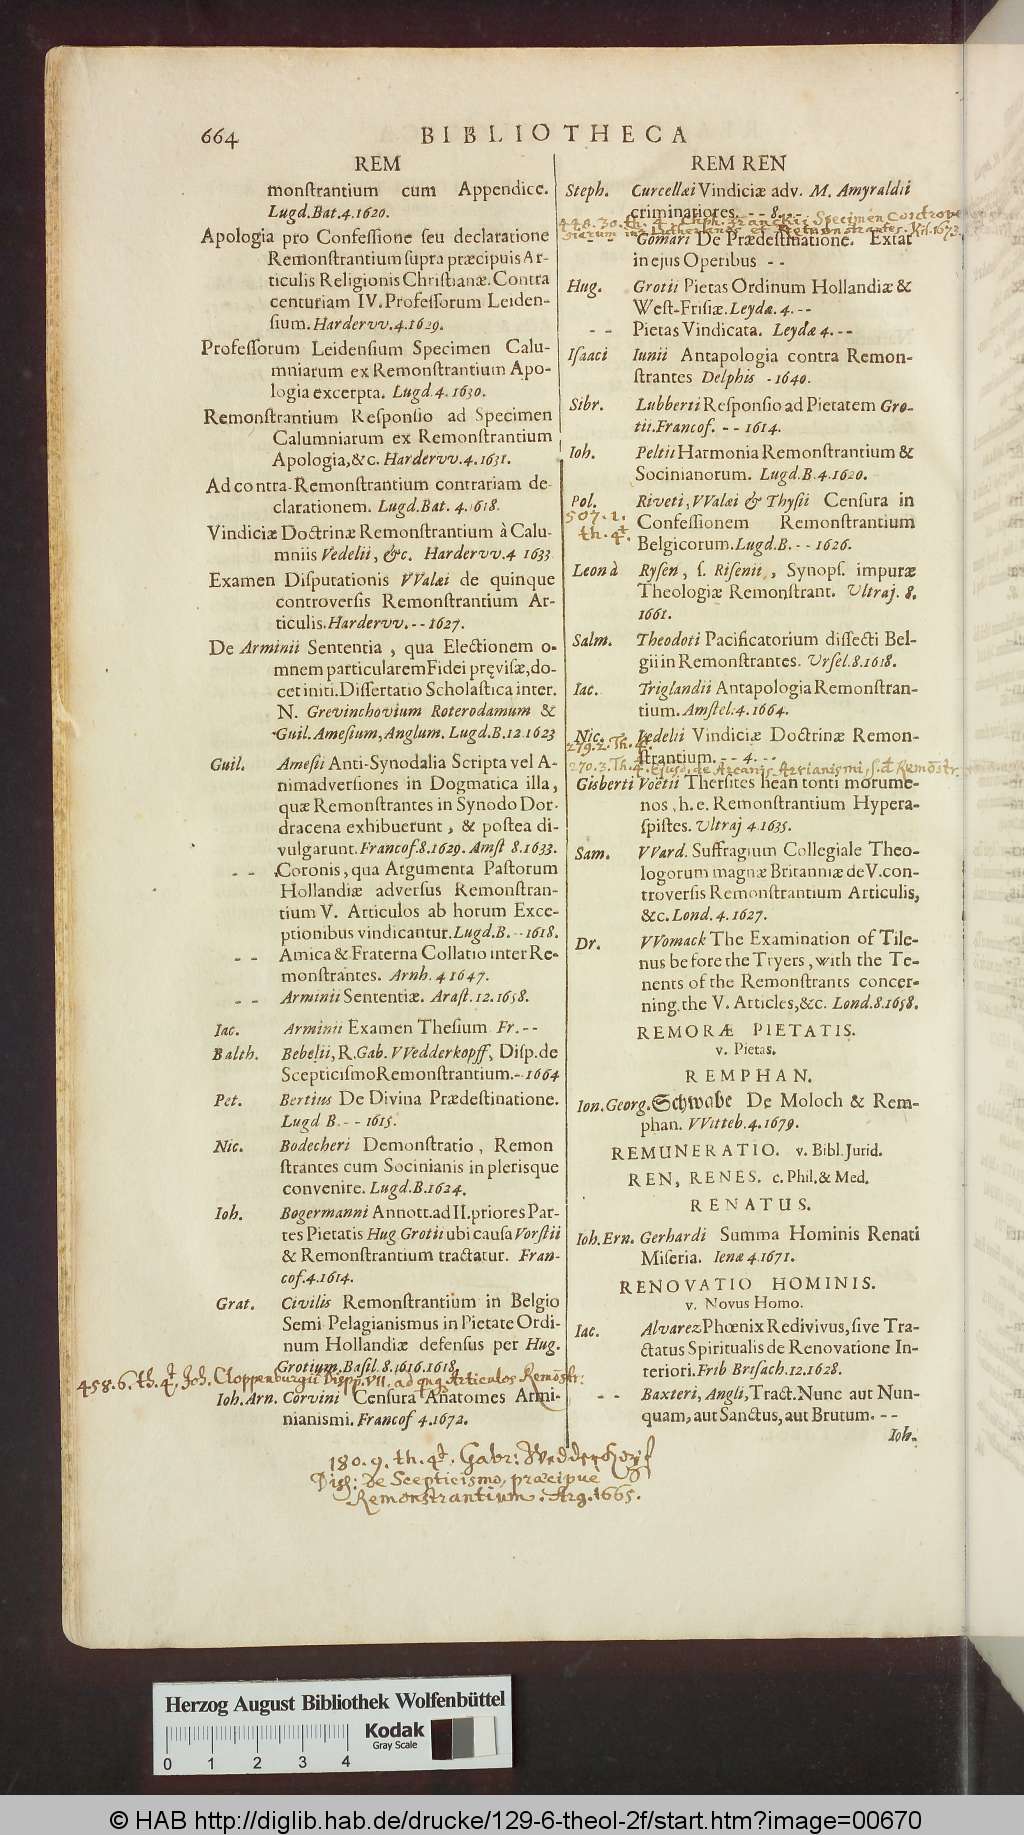 664 BIBLIOTHECA
REM
monstrantium cum Appendice.
Lugd.Bat.4.1620.
Apologia pro Confessione seu declaratione
Remonstrantium supra præcipuis Ar-
ticulis Religionis Christianæ. Contra
centuriam IV. Professorum Leiden-
sium. Hardervv.4.1629.
Professorum Leidensium Specimen Calu-
mniarum ex Remonstrantium Apo-
logia excerpta. Lugd.4.1630.
Remonstrantium Responsio ad Specimen
Calumniarum ex Remonstrantium
Apologia,&c. Hardervv.4.1631.
Ad contra-Remonstrantium contrariam de-
clarationem. Lugd.Bat. 4.1618.
Vindiciæ Doctrinæ Remonstrantium à Calu-
mniis Vedelii, &c. Hardervv.4 1633
Examen Disputationis VValæi de quinque
controversis Remonstrantium Ar-
ticulis. Hardervv.--1627.
De Arminii Sententia, qua Electionem o-
mnem particularem Fidei pręvisæ, do-
cet initi. Dissertatio Scholastica inter.
N. Grevinchovium Roterodamum &
Guil. Amesium, Anglum. Lugd.B.12 1623
Guil. Amesii Anti-Synodalia Scripta vel A-
nimadversiones in Dogmatica illa,
quæ Remonstrantes in Synodo Dor-
dracena exhibuerunt, & postea di-
vulgarunt. Francof.8.1629. Amst 8.1633.
-- Coronis, qua Argumenta Pastorum
Hollandiæ adversus Remonstran-
tium V. Articulos ab horum Exce-
ptionibus vindicantur. Lugd.B.--1618.
-- Amica & Fraterna Collatio inter Re-
monstrantes. Arnh. 4 1647.
-- Arminii Sententiæ. Arast.12.1658.
Iac. Arminii Examen Thesium Fr.--
Balth. Bebelii, R. Gab. VVedderkopff, Disp. de
Scepticismo Remonstrantium.-1664
Pet. Bertius De Divina Prædestinatione.
Lugd B.--1615.
Nic. Bodecheri Demonstratio, Remon
strantes cum Socinianis in plerisque
convenire. Lugd.B.1624.
Ioh. Bogermanni Annott. ad II. priores Par-
tes Pietatis Hug Grotii ubi causa Vorstii
& Remonstrantium tractatur. Fran-
cof.4.1614.
Grat. Civilis Remonstrantium in Belgio
Semi-Pelagianismus in Pietate Ordi
num Hollandiæ defensus per Hug.
Grotium. Basil. 8.1616.1618.
458.6.th.4t. Joh. Cloppenburgii Dispp. VII. ad qnq Articulos Remōstr:
Ioh. Arn. Corvini Censura Anatomes Armi-
nianismi. Francof 4.1672.
180.9.th.4t. Gabr: Wedderkopf
Diss: de Scepticismo, præcipue
Remonstrantium. Arg. 1665.
REM REN
Steph. Curcellæi Vindiciæ adv. M. Amyraldii
criminatiores.--8.--
Specimen Controver
siarum in Netherlandis et Remonstrantes. Kil. 1673.
Gomari De Prædestinatione. Extat
in ejus Operibus --
Hug. Grotii Pietas Ordinum Hollandiæ &
West-Frisiæ. Leydæ. 4.--
-- Pietas Vindicata. Leydæ 4.--
Isaaci Iunii Antapologia contra Remon-
strantes Delphis -1640.
Sibr. Lubberti Responsio ad Pietatem Gro-
tii. Francof. --1614.
Ioh. Peltii Harmonia Remonstrantium &
Socinianorum. Lugd.B.4.1620.
Pol. Riveti, VValæi & Thysii Censura in
507.1.
Confessionem Remonstrantium
th.4t.
Belgicorum. Lugd.B.--1626.
Leon à Rysen, s. Risenii, Synops. impuræ
Theologiæ Remonstrant. Vltraj. 8.
1661.
Salm. Theodoti Pacificatorium dissecti Bel-
gii in Remonstrantes. Vrsel.8.1618.
Iac. Triglandii Antapologia Remonstran-
tium. Amstel.4.1664.
Nic. Vedelii Vindiciæ Doctrinæ Remon-
279.2.Th.4t.
strantium.--4.--
270.3.Th.4t. Ejusd. de Arcanis Arrianismi, s.d Remōstr.
Gisberti Voëtii Thersites heautonti morume-
nos, h.e. Remonstrantium Hypera-
spistes. Vltraj 4.1635.
Sam. VVard. Suffragium Collegiale Theo-
logorum magnæ Britanniæ de V. con-
troversis Remonstrantium Articulis,
&c. Lond. 4.1627.
Dr. VVomack The Examination of Tile-
nus before the Tryers, with the Te-
nents of the Remonstrants concer-
ning the V. Articles,&c. Lond.8.1658.
REMORÆ PIETATIS.
v. Pietas.
REMPHAN.
Ion. Georg. Schwabe De Moloch & Rem-
phan. VVitteb.4.1679.
REMUNERATIO. v. Bibl. Jurid.
REN, RENES. c. Phil. & Med.
RENATUS.
Ioh. Ern. Gerhardi Summa Hominis Renati
Miseria. Ienæ 4.1671.
RENOVATIO HOMINIS.
v. Novus Homo.
Iac. Alvarez Phœnix Redivivus, sive Tra-
ctatus Spiritualis de Renovatione In-
teriori. Frib Brisach.12.1628.
-- Baxteri, Angli, Tract. Nunc aut Nun-
quam, aut Sanctus, aut Brutum. --
Ioh.
Herzog August Bibliothek Wolfenbüttel
0 1 2 3 4
Kodak
Gray Scale
© HAB http://diglib.hab.de/drucke/129-6-theol-2f/start.htm?image=00670